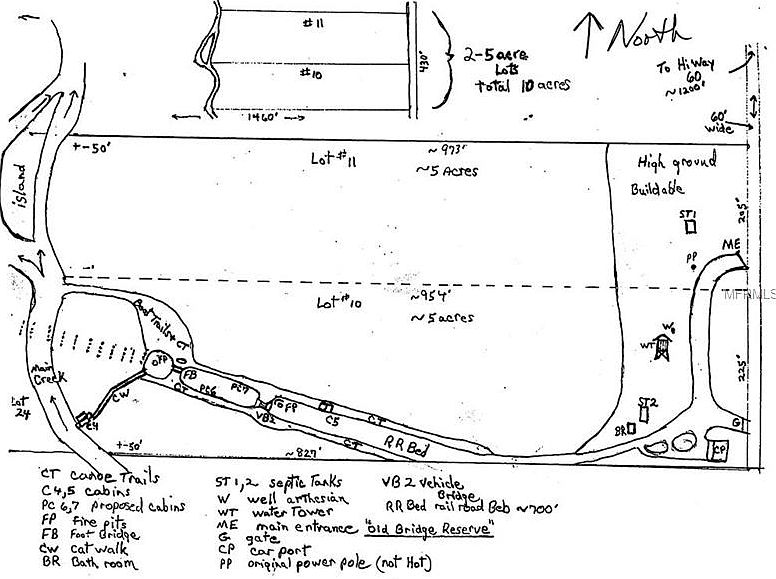 #11
#10
430'
1460'
2-5 acre
Lots
total 10 acres
North
To HiWay
60
~1200'
60'
wide
+-50'
Lot #11
~973'
~5 Acres
High ground
Buildable
ST1
205'
ME
PP
island
Lot #10
~954'
~5 acres
MFRMLS
Boat Trails & CT
W
WT
225'
Main
Creek
Lot
24
FP
FB
CT
PC6
PC7
To FP
VB2
C5
CT
CW
C4
CT
RR Bed
ST2
BR
G
CP
+-50'
~827'
CT canoe Trails
C4,5 cabins
PC 6,7 proposed cabins
FP fire pits
FB Foot Bridge
CW cat walk
BR Bath room
ST1,2 septic Tanks
W well arthesian
WT water Tower
ME main entrance "old Bridge Reserve"
G gate
CP car port
PP original power pole (not Hot)
VB2 vehicle
Bridge
RR Bed rail road Beb ~700'